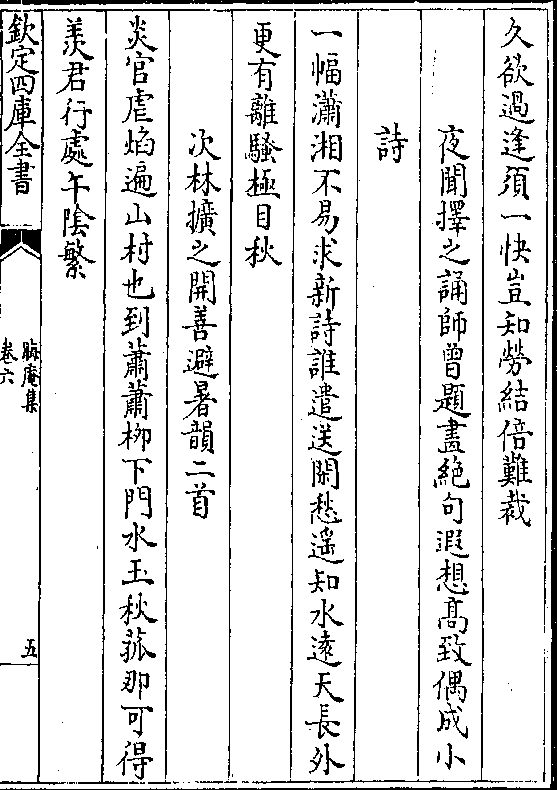 久欲過逢須一快豈知勞結倍難裁
夜聞擇之誦師曾題畫絶句遐想髙致偶成小
詩
一幅瀟湘不易求新詩誰遣送閑愁遥知水逺天長外
更有離騷極目秋
次林擴之開善避暑韻二首
炎官虐焰遍山村也到蕭蕭栁下門水玉秋菰那可得
羨君行處午陰繁
欽定四庫全書
晦庵集
卷六
五